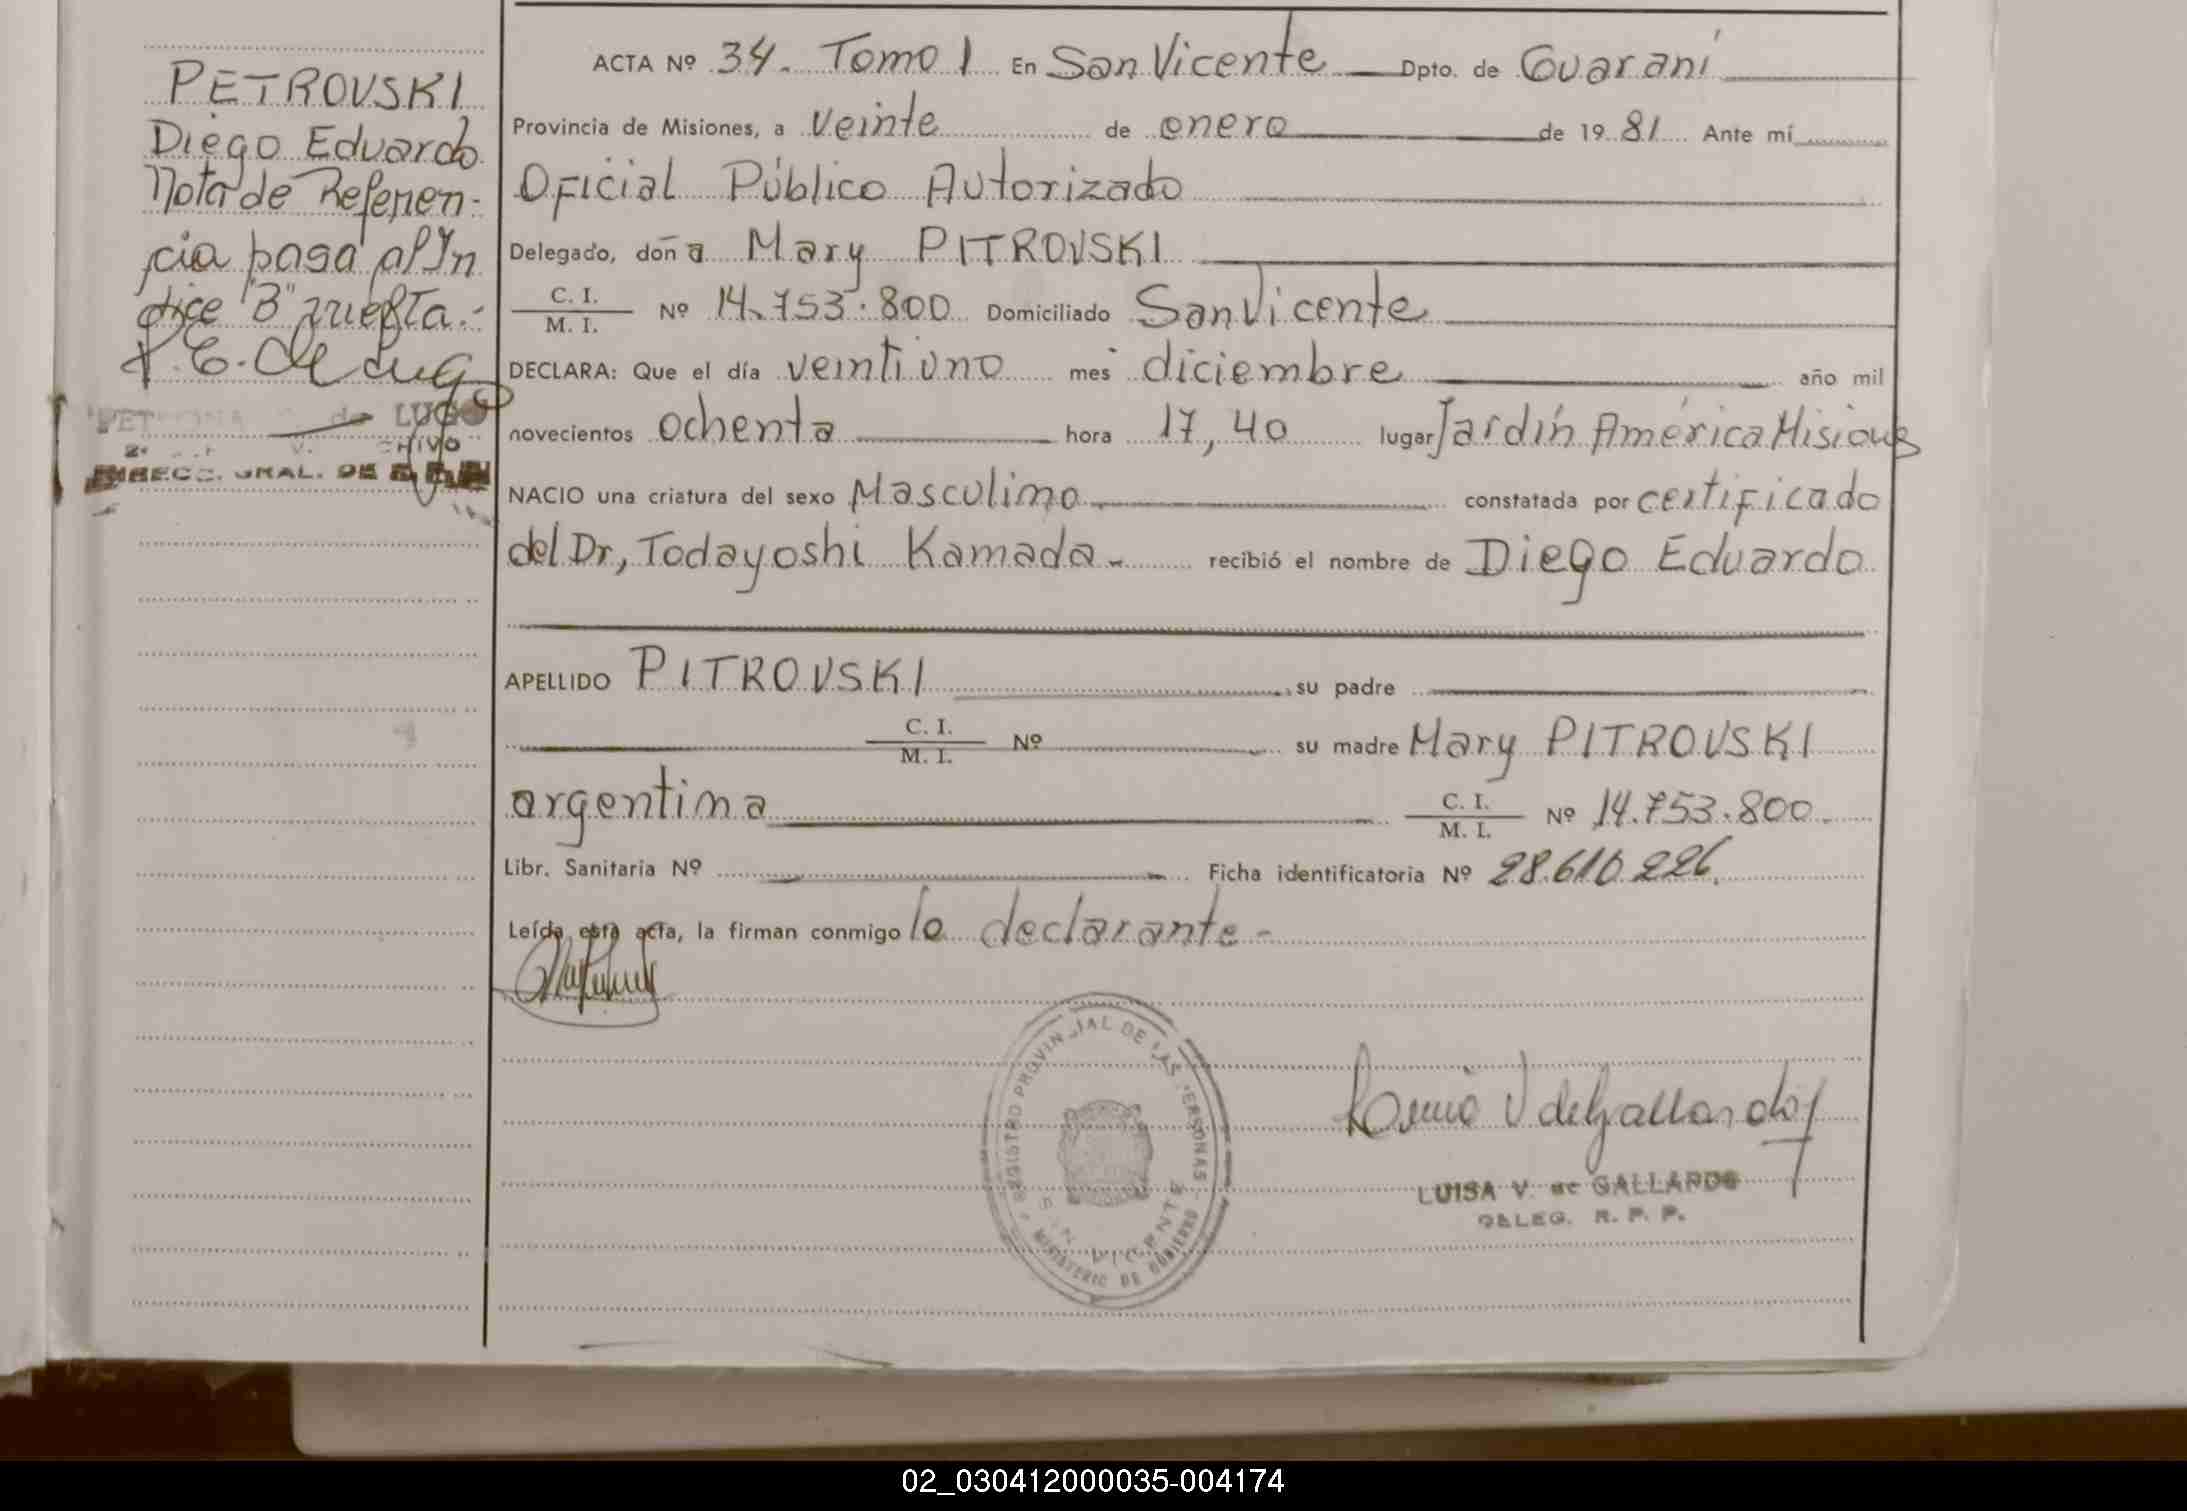 PETROVSKI
Diego Eduardo
Nota de Referen-
cia pasa al In
dice "B" vuelta.-
LUGO
DIRECC. GRAL. DE
ACTA Nº 34. Tomo I En San Vicente Dpto. de Guaraní
Provincia de Misiones, a veinte de enero de 1981 Ante mí
Oficial Público Autorizado
Delegado, doña Mary PITROVSKI
C. I.
M. I. Nº 14.753.800 Domiciliado San Vicente
DECLARA: Que el día veintiuno mes diciembre año mil
novecientos ochenta hora 17,40 lugar Jardín América Misiones
NACIO una criatura del sexo Masculino constatada por certificado
del Dr, Todayoshi Kamada- recibió el nombre de Diego Eduardo
APELLIDO PITROVSKI su padre
C. I.
M. I. Nº su madre Mary PITROVSKI
argentina C. I.
M. I. Nº 14.753.800
Libr. Sanitaria Nº Ficha identificatoria Nº 28.610.226.
Leída esta acta, la firman conmigo la declarante-
REGISTRO PROVINCIAL DE LAS PERSONAS
SAN VICENTE
MINISTERIO DE GOBIERNO
LUISA V. de GALLARDO
DELEG. R. P. P.
02_030412000035-004174